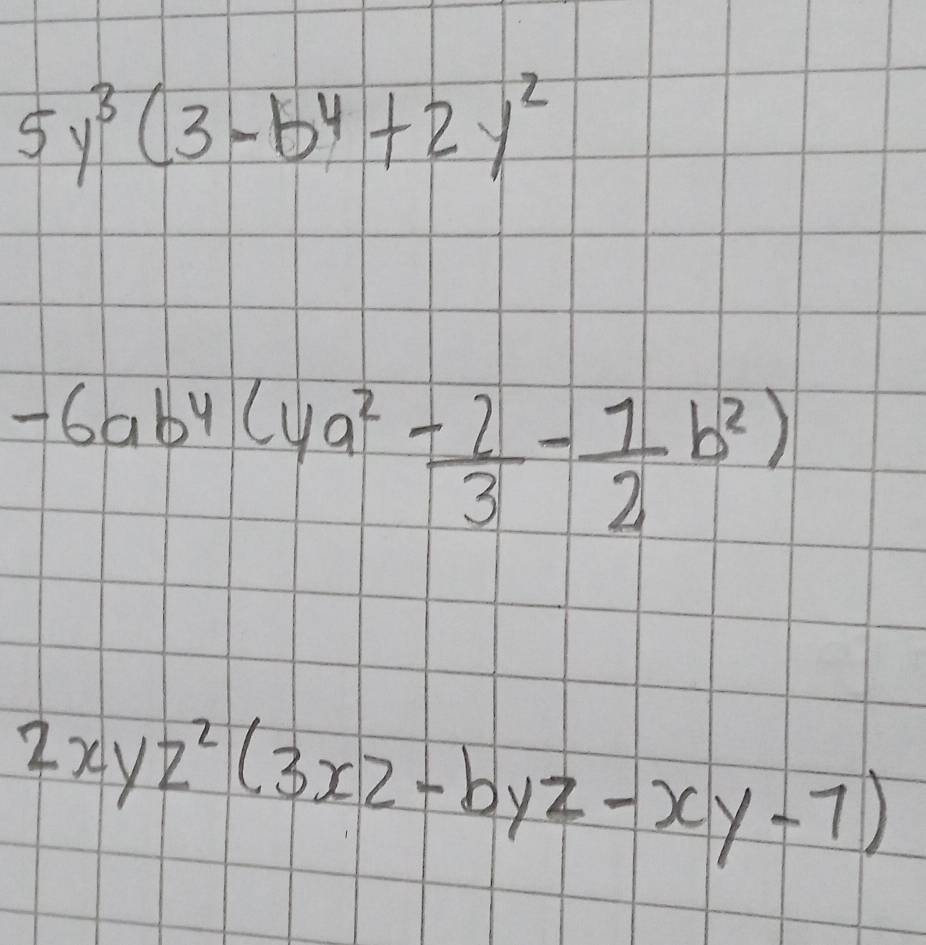 5y³(3-b⁴+2y²
-6ab⁴(4a²-2/3-1/2b²)
2xyz²(3xz+byz-xy-7)